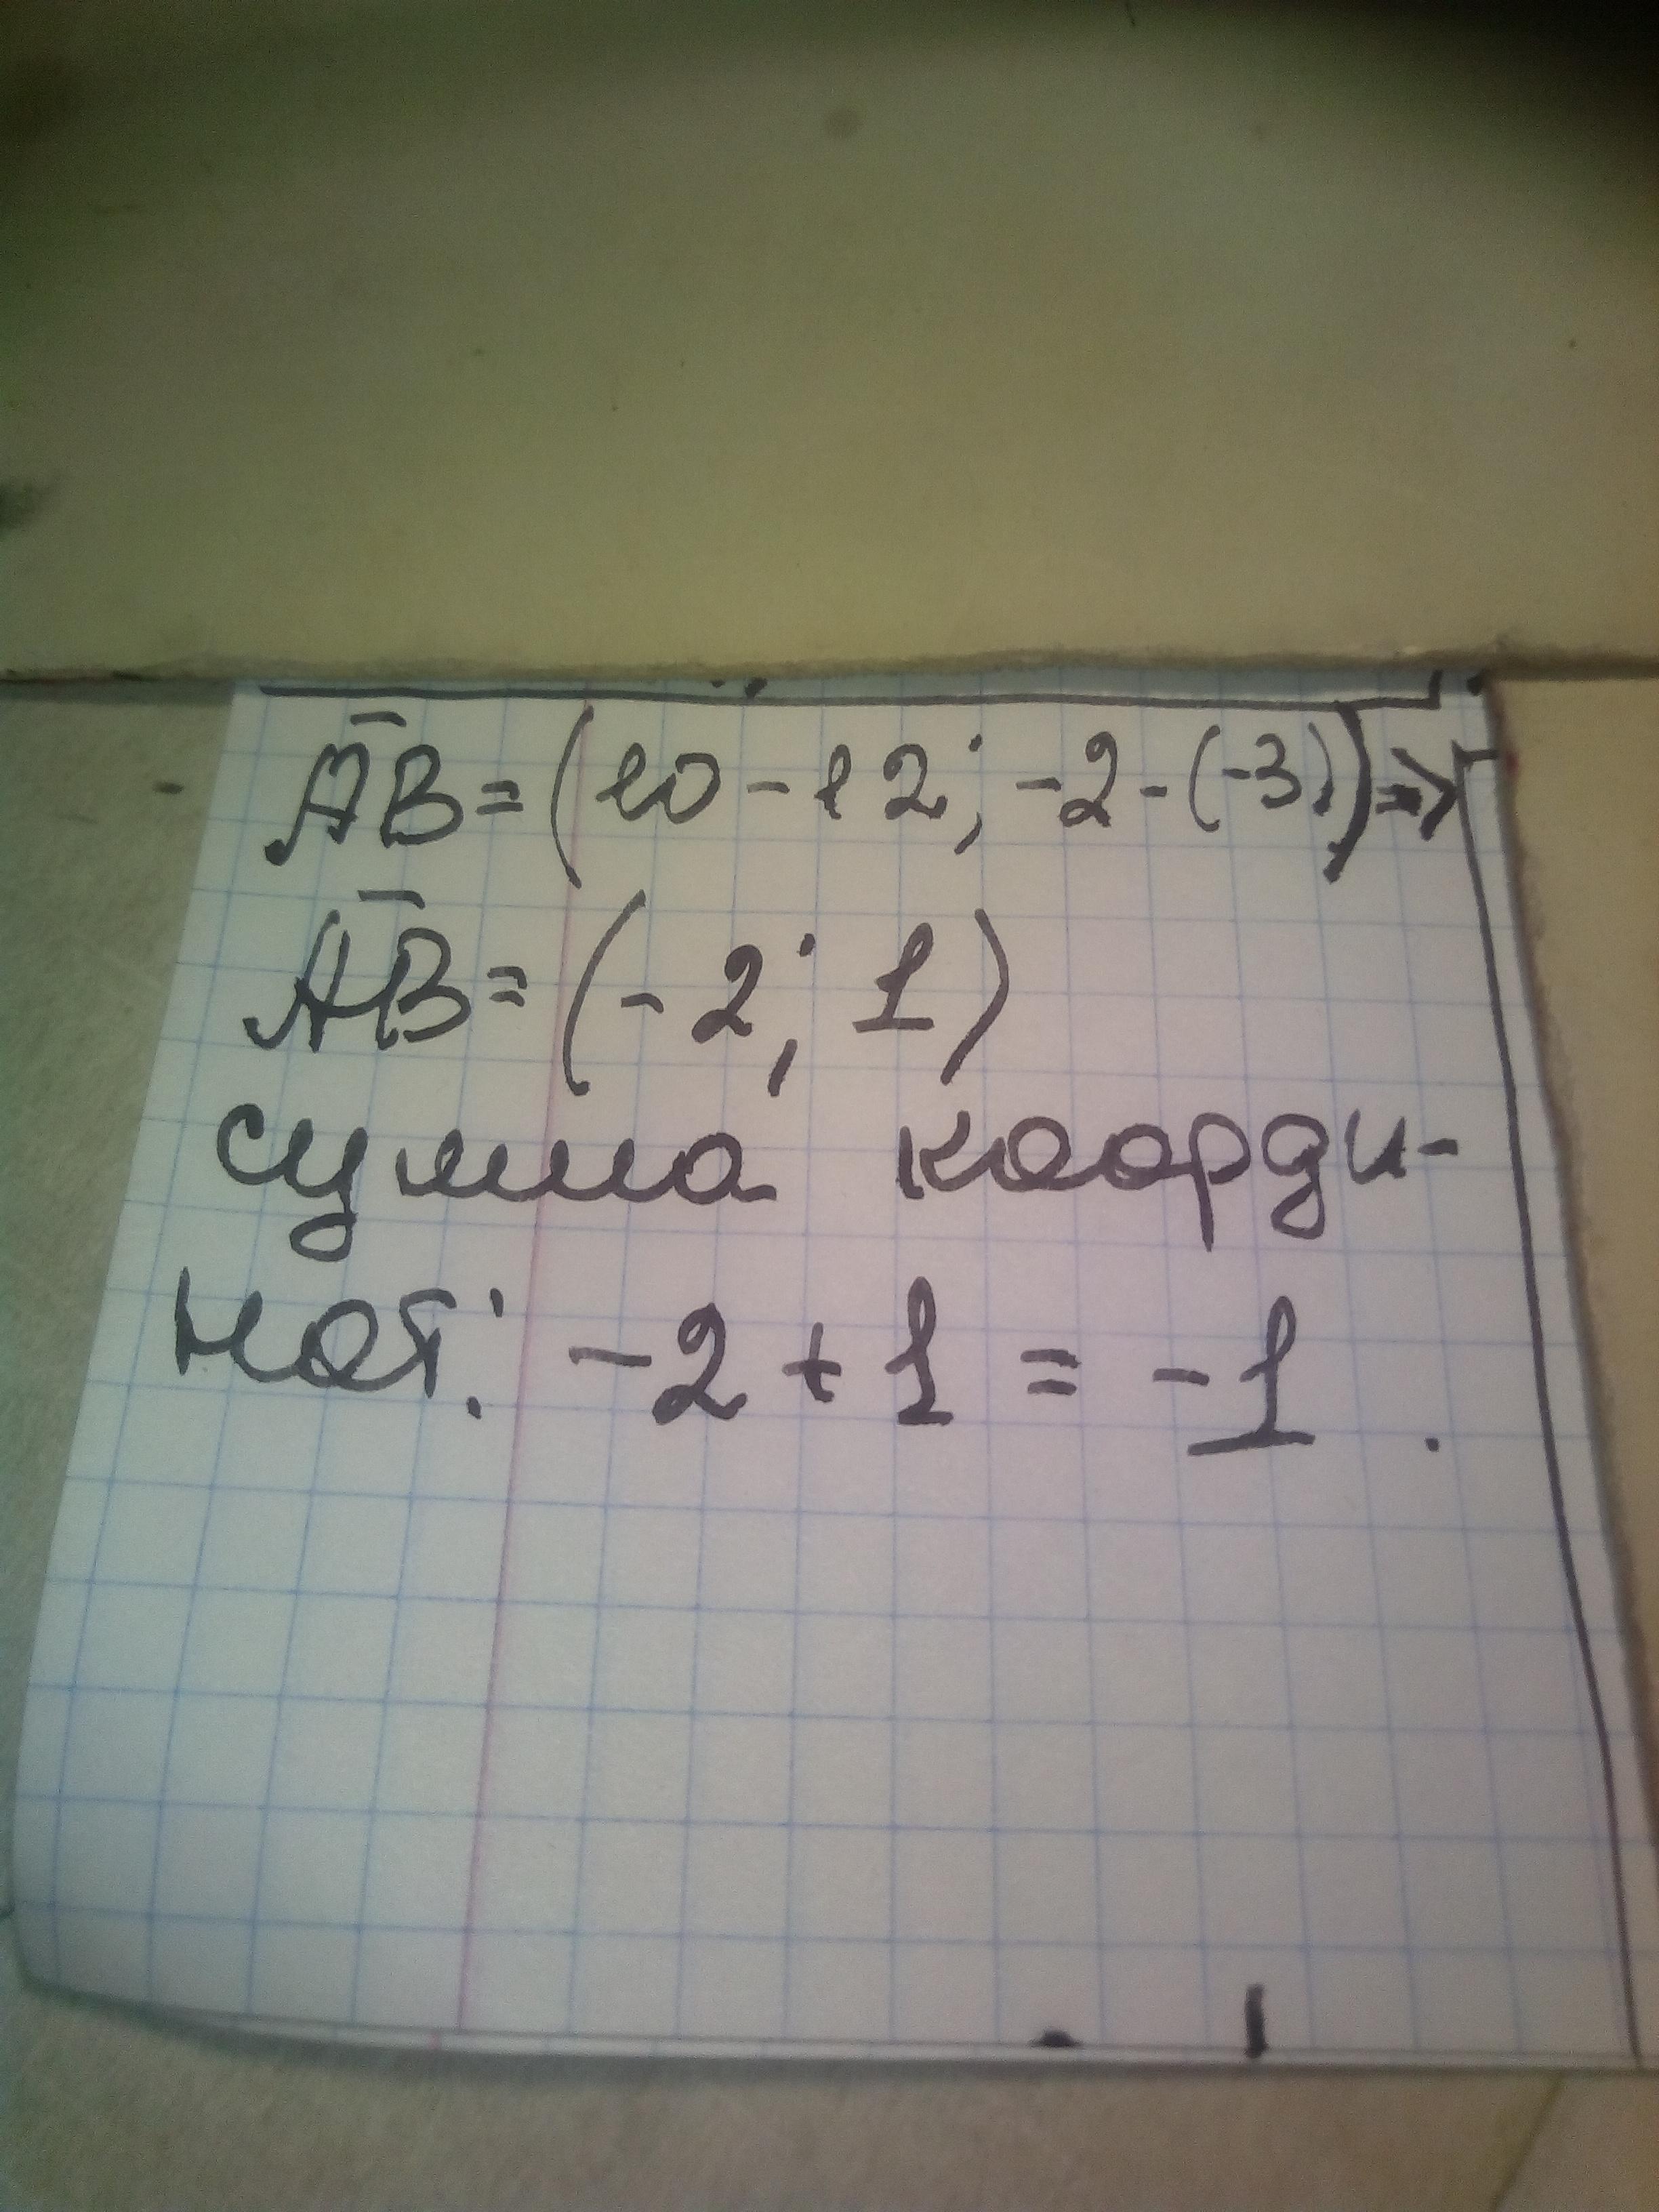 A̅B̅ = (10 - 12; -2 - (-3)) =>
A̅B̅ = (-2; 1)
сумма коорди-
нат: -2 + 1 = -1.